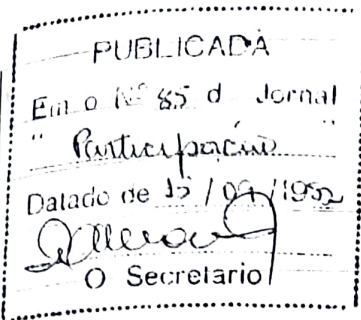 PUBLICADA
Em o Nº 85 d Jornal
" Participación "
Datado de 15 / 09 / 1992
O Secretario